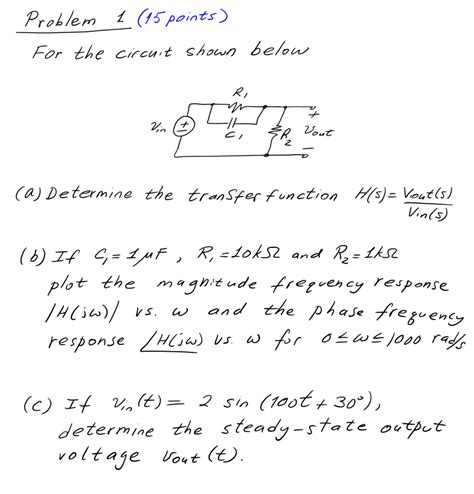 Problem 1 (15 points)
For the circuit shown below
R₁
+
Vin
+
C₁
R₂
Vout
−
(a) Determine the transfer function H(s) = Vout(s)
Vin(s)
(b) If C₁ = 1 μF , R₁ = 10kΩ and R₂ = 1kΩ
plot the magnitude frequency response
|H(jω)| vs. ω and the phase frequency
response ∠H(jω) vs. ω for 0 ≤ ω ≤ 1000 rad/s
(c) If Vin(t) = 2 sin (100t + 30°),
determine the steady-state output
voltage Vout (t).